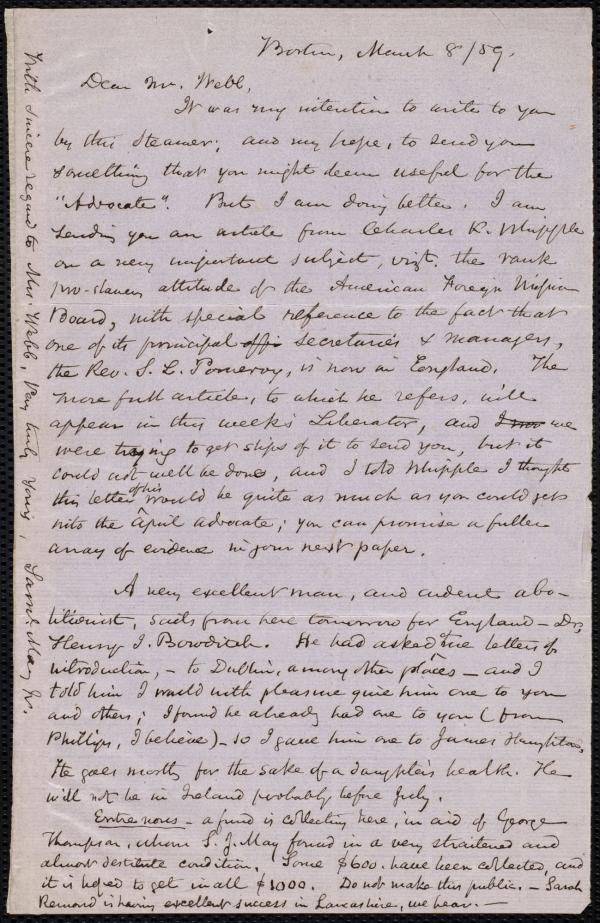 Boston, March 8/59.
Dear Mr. Webb,
It was my intention to write to you
by this Steamer; and my hope, to send you
something that you might deem useful for the
"Advocate". But I am doing better. I am
sending you an article from Charles K. Whipple
on a very important subject, vizt. the rank
pro-slavery attitude of the American Foreign Mission
Board, with special reference to the fact that
one of its principal offi secretaries & managers,
the Rev. S. L. Pomeroy, is now in England. The
more full article, to which he refers, will
appear in this week's Liberator, and I was we
were trying to get slips of it to send you, but it
could not well be done, and I told Whipple I thought
this letter of his would be quite as much as you could get
into the April Advocate; you can promise a fuller
array of evidence in your next paper.
A very excellent man, and ardent abo-
litionist, sails from here tomorrow for England – Dr.
Henry I. Bowditch. He had asked me letters of
introduction, – to Dublin, among other places – and I
told him I would with pleasure give him one to you
and others; I found he already had one to you (from
Phillips, I believe) – so I gave him one to James Haughton.
He goes mostly for the sake of a daughter's health. He
will not be in Ireland probably before July.
Entre nous – a fund is collecting here, in aid of George
Thompson, whom S. J. May found in a very straitened and
almost destitute condition. Some $600. have been collected, and
it is hoped to get in all $1000. Do not make this public. – Sarah
Remond is having excellent success in Lancashire, we hear. –
With sincere regard to Mrs. Webb, Very truly yours, Saml. May Jr.